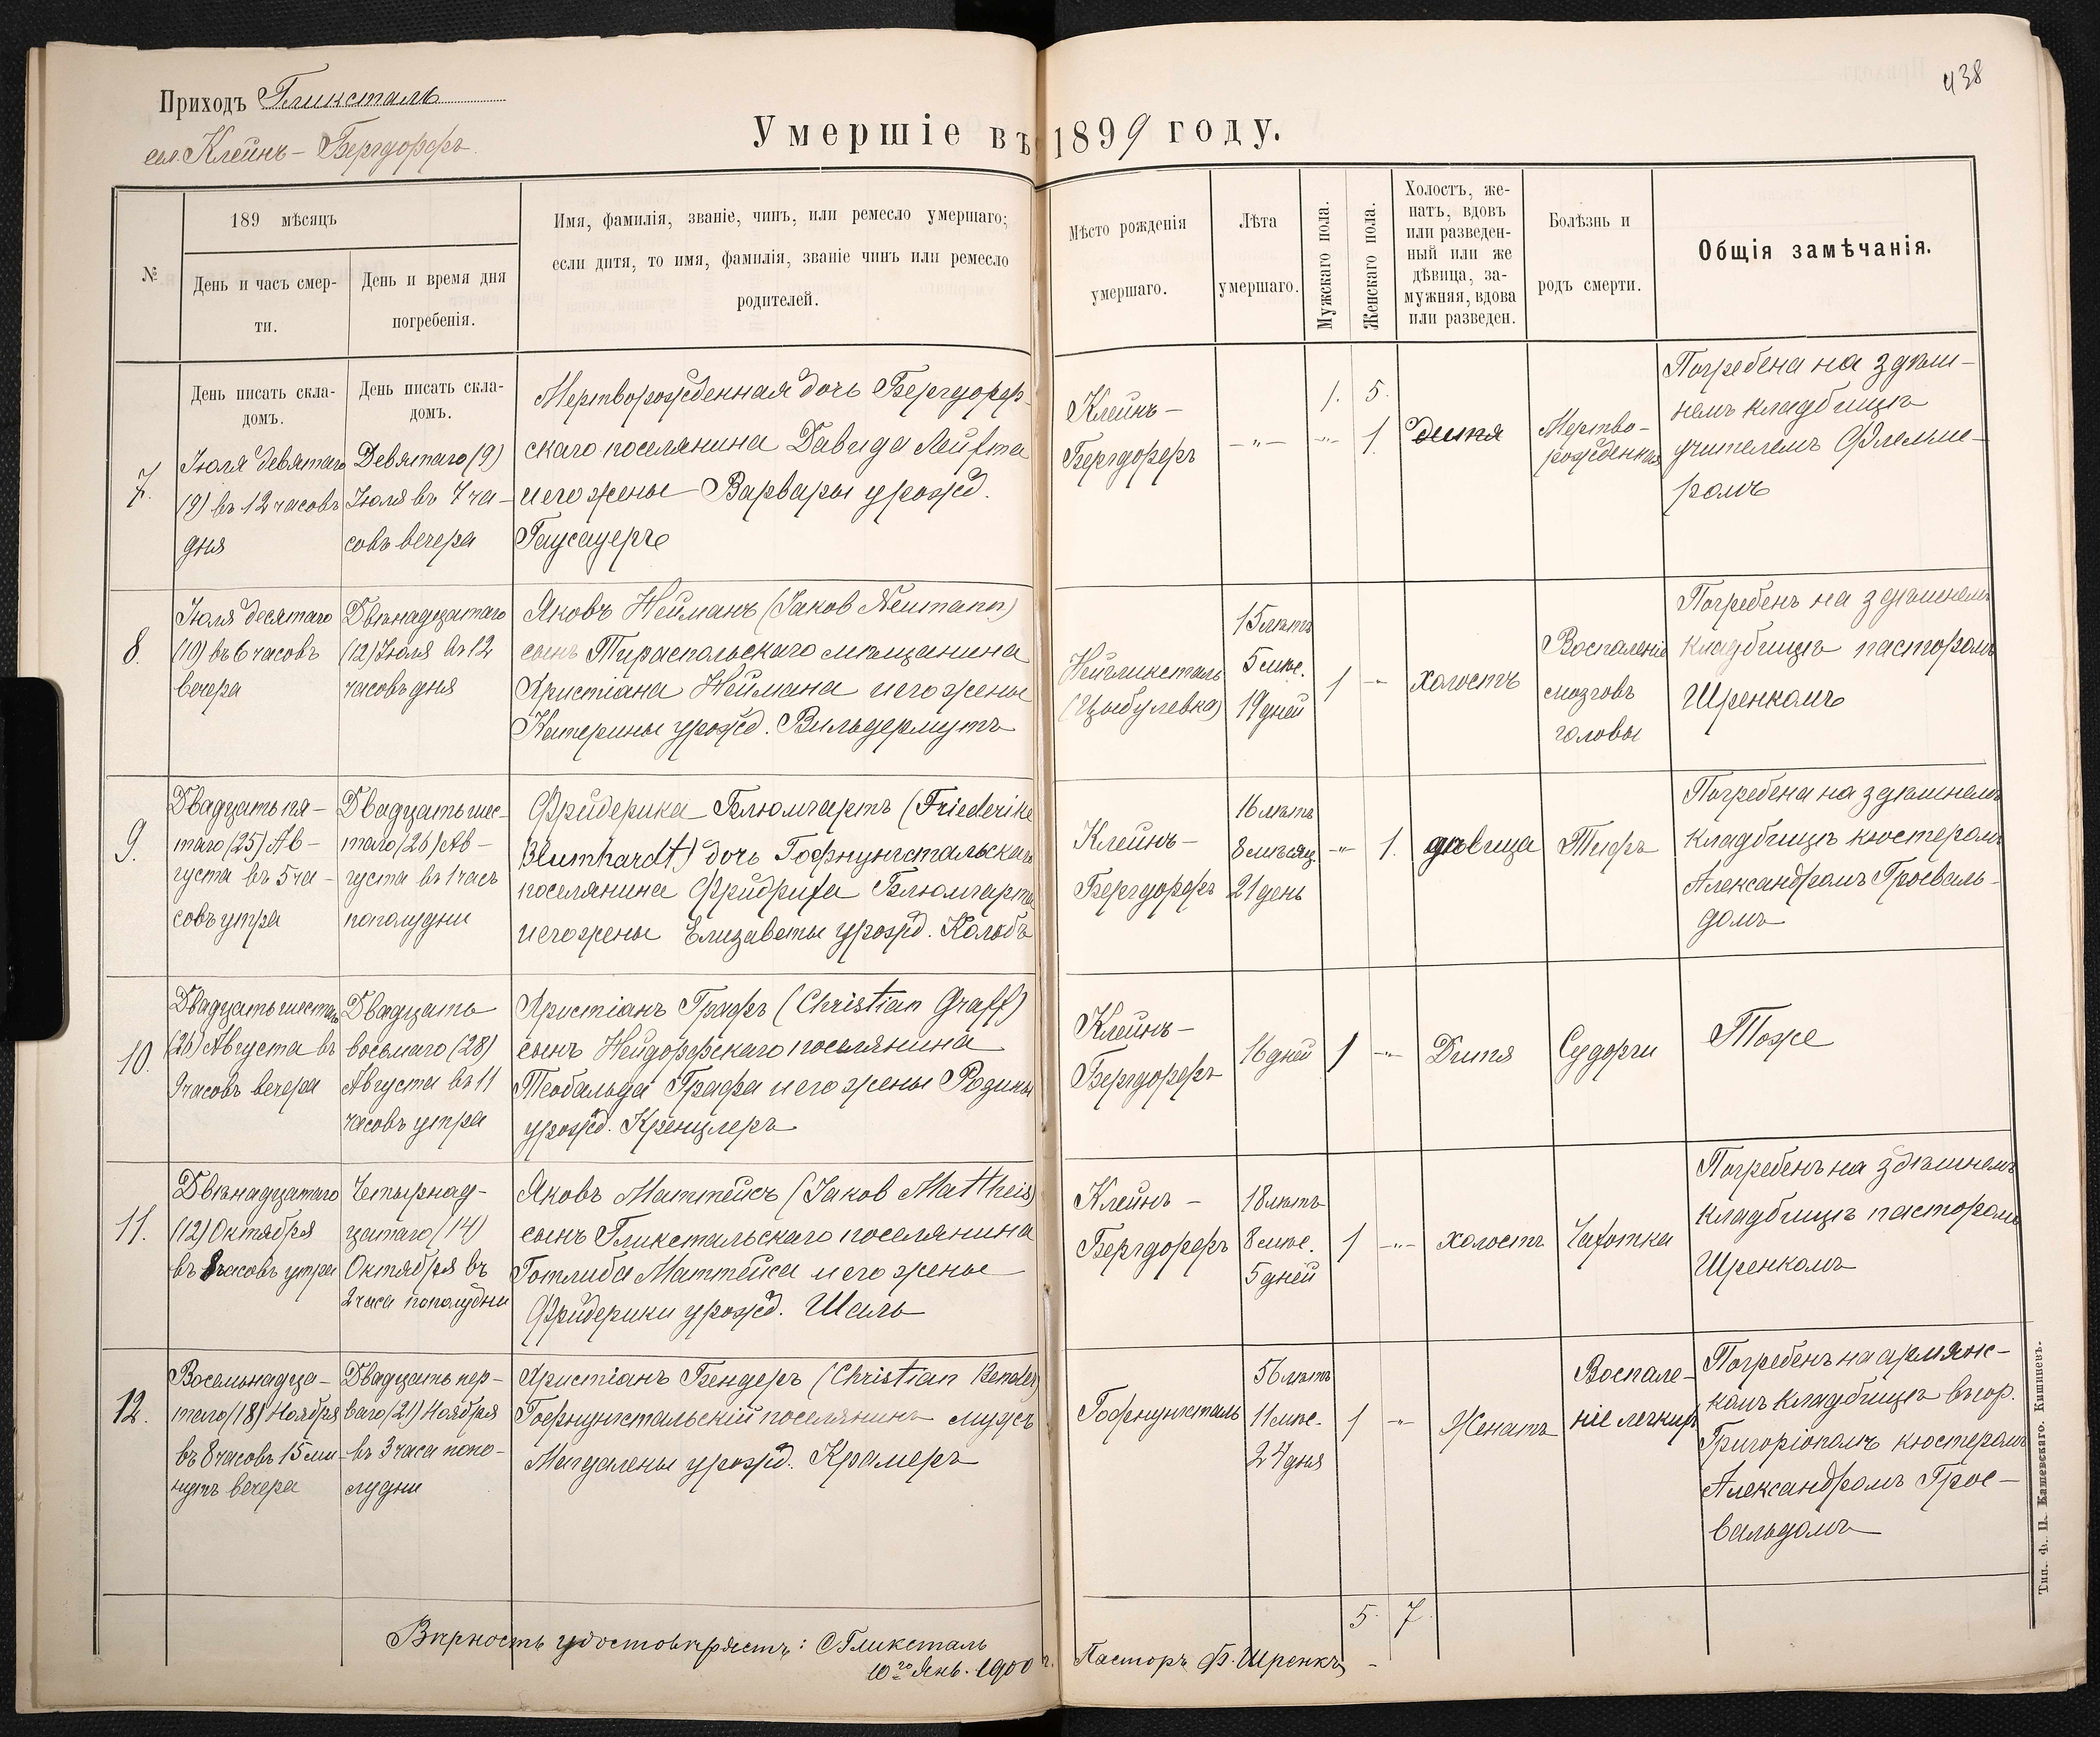 Приходъ Гликсталь
сел. Клейнъ-Бергдорфъ
438
Умершіе въ 1899 году.
№
189 мѣсяцъ
День и часъ смер-
ти.
День и время дня
погребенія.
Имя, фамилія, званіе, чинъ, или ремесло умершаго;
если дитя, то имя, фамилія, званіе чинъ или ремесло
родителей.
Мѣсто рожденія
умершаго.
Лѣта
умершаго.
Мужскаго пола.
Женскаго пола.
Холостъ, же-
натъ, вдовъ
или разведен-
ный или же
дѣвица, за-
мужняя, вдова
или разведен.
Болѣзнь и
родъ смерти.
Общія замѣчанія.
День писать скла-
домъ.
День писать скла-
домъ.
1. 5.
7.
Іюля девятаго
(9) въ 12 часовъ
дня
Девятаго (9)
Іюля въ 7 ча-
совъ вечера
Мертворожденная дочь Бергдорф-
скаго поселянина Давида Лейхта
и его жены Варвары урожд.
Гаусауеръ
Клейнъ-
Бергдорфъ
-"-
-"-
1.
дитя
Мертво-
рожденная
Погребена на здѣш-
немъ кладбищѣ
учителемъ Флемме-
ромъ
8.
Іюля десятаго
(10) въ 6 часовъ
вечера
Двѣнадцатаго
(12) Іюля въ 12
часовъ дня
Яковъ Нейманъ (Jakob Neumann)
сынъ Тираспольскаго мѣщанина
Христіана Неймана и его жены
Катерины урожд. Вильдермутъ
Нейгликсталь
(Цыбулевка)
15 лѣтъ
5 мѣс.
19 дней
1
-"-
холостъ
Воспаленіе
мозговъ
головы
Погребенъ на здѣшнемъ
кладбищѣ пасторомъ
Шренкомъ
9.
Двадцать пя-
таго (25) Ав-
густа въ 5 ча-
совъ утра
Двадцать шес-
таго (26) Ав-
густа въ 1 часъ
пополудни
Фридерика Блюмгартъ (Friederike
Blumhardt) дочь Гофнунгстальскаго
поселянина Фридриха Блюмгарта
и его жены Елизаветы урожд. Кольбъ
Клейнъ-
Бергдорфъ
16 лѣтъ
8 мѣсяц.
21 день
-"-
1.
дѣвица
Тифъ
Погребена на здѣшнемъ
кладбищѣ кюстеромъ
Александромъ Гроеваль-
домъ
10.
Двадцать шестаго
(26) Августа въ
9 часовъ вечера
Двадцать
восьмаго (28)
Августа въ 11
часовъ утра
Христіанъ Графъ (Christian Graff)
сынъ Нейдорфскаго поселянина
Теобальда Графа и его жены Розины
урожд. Кренцлеръ
Клейнъ-
Бергдорфъ
16 дней
1
-"-
Дитя
Судорги
Тоже
11.
Двѣнадцатаго
(12) Октября
въ 8 часовъ утра
Четырнад-
цатаго (14)
Октября въ
2 часа пополудни
Яковъ Маттейсъ (Jakob Mattheis)
сынъ Гликстальскаго поселянина
Готлиба Маттейса и его жены
Фридерики урожд. Шаль
Клейнъ-
Бергдорфъ
18 лѣтъ
8 мѣс.
5 дней
1
-"-
холостъ
Чахотка
Погребенъ на здѣшнемъ
кладбищѣ пасторомъ
Шренкомъ
12.
Восемьнадца-
таго (18) Ноября
въ 8 часовъ 15 ми-
нутъ вечера
Двадцать пер-
ваго (21) Ноября
въ 3 часа попо-
лудни
Христіанъ Бендеръ (Christian Bender)
Гофнунгстальскій поселянинъ мужъ
Магдалены урожд. Крамеръ
Гофнунгсталь
56 лѣтъ
11 мѣс.
24 дня
1
-"-
Женатъ
Воспале-
ніе легкихъ
Погребенъ на армянс-
комъ кладбищѣ въ гор.
Григоріополѣ кюстеромъ
Александромъ Грое-
вальдомъ
5. 7.
Вѣрность удостовѣряетъ: С. Гликсталь
10го Янв. 1900 г. Пасторъ Ф. Шренкъ
Тип. Ф. П. Кашевскаго. Кишиневъ.